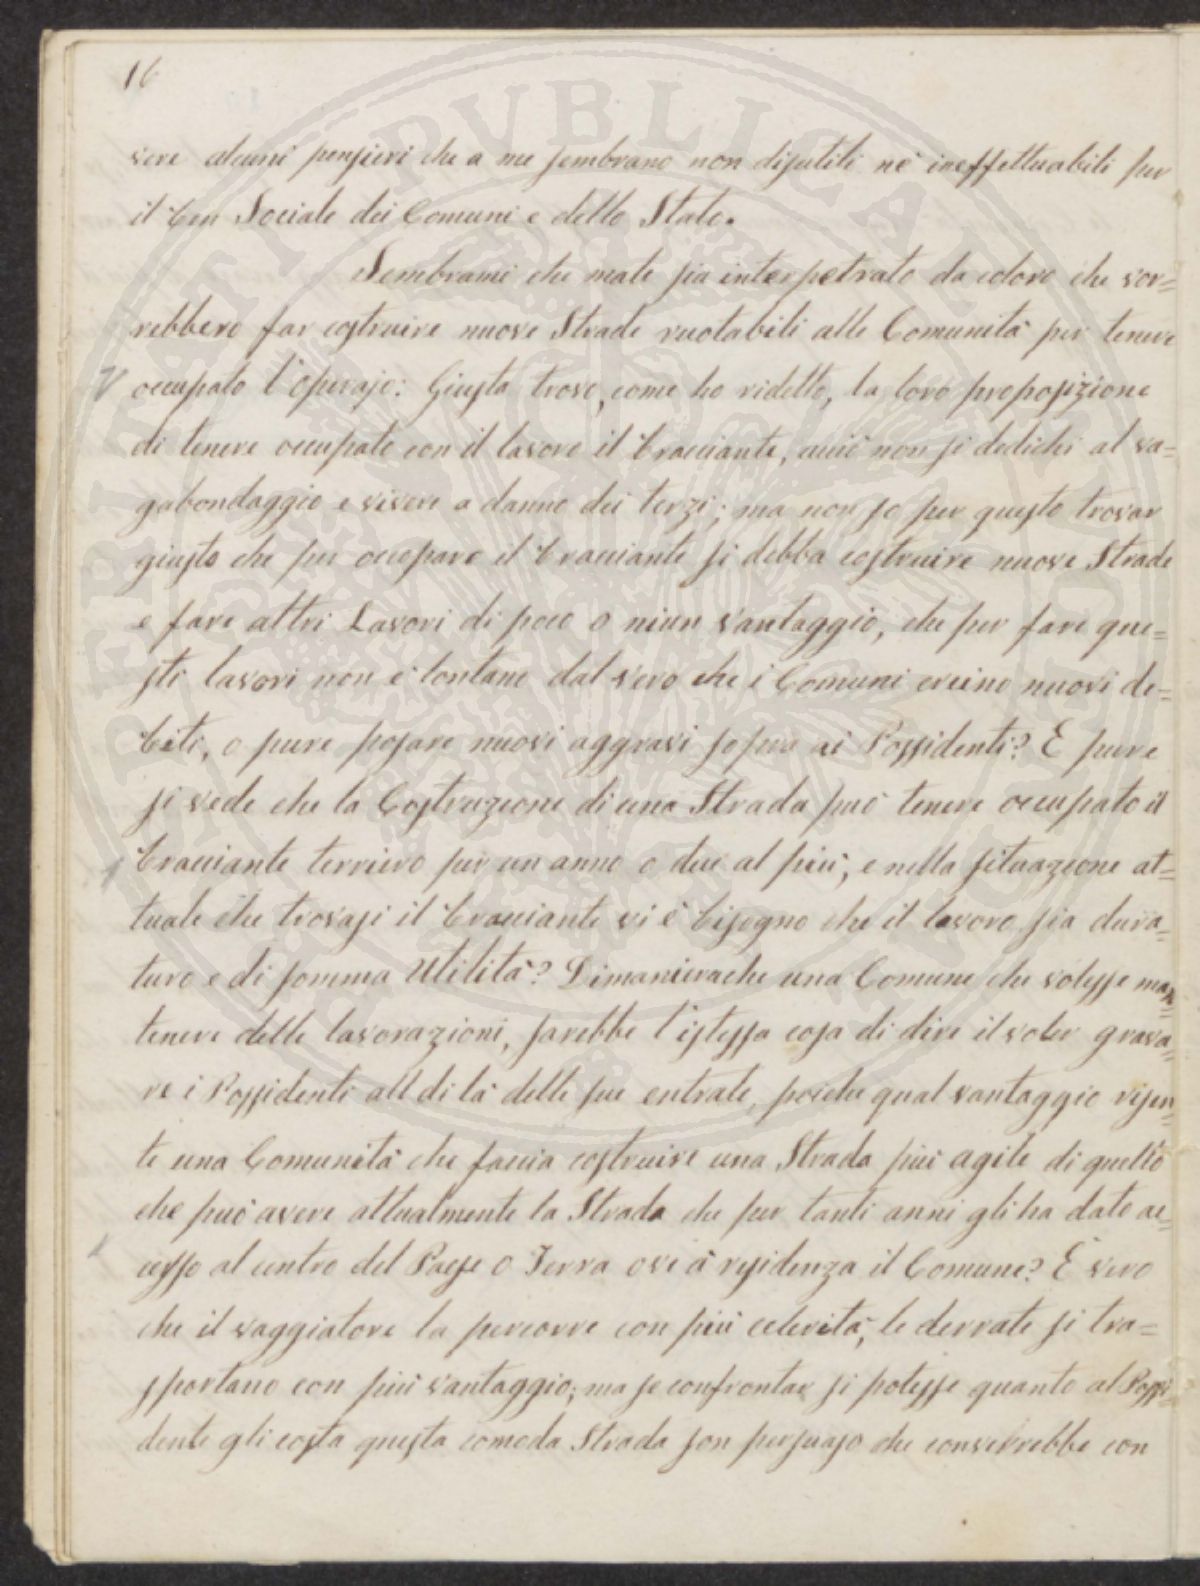 16
vere alcuni pensieri che a me sembrano non disutili nè ineffettuabili per
il ben Sociale dei Comuni e dello Stato.
Sembrami che male sia interpetrato da coloro che vor=
rebbero far costruire nuove Strade ruotabili alle Comunità per tenere
occupato l'operajo: Giusta trovo, come ho ridetto, la loro proposizione
di tenere occupato con il lavoro il bracciante, acciò non si dedichi al va=
gabondaggio e vivere a danno dei terzi; ma non so per questo trovar
giusto che per occopare il bracciante si debba costruire nuove Strade
e fare altri Lavori di poco o niun vantaggio, che per fare que=
sti lavori non è lontano dal vero che i Comuni creino nuovi de=
biti, o pure posare nuovi aggravi sopra ai Possidenti? E pure
si vede che la Costruzione di una Strada può tenere occupato il
bracciante terriero per un anno o due al più, e nella situazione at=
tuale che trovasi il bracciante vi è bisogno che il lavoro sia dura=
turo e di somma Utilità? Dimanierache una Comune che volesse man=
tenere delle lavorazioni, sarebbe l'istessa cosa di dire il voler grava=
re i Possidenti all di là delle sue entrate, poiche qual vantaggio risen=
te una Comunità che faccia costruire una Strada più agile di quello
che può avere attualmente la Strada che per tanti anni gli ha dato ac=
cesso al centro del Paese o Terra ove à residenza il Comune? È vero
che il vaggiatore la percorre con più celerità, le derrate si tra=
sportano con più vantaggio; ma se confrontar si potesse quanto al Possi=
dente gli costa questa comoda Strada son persuaso che converrebbe con